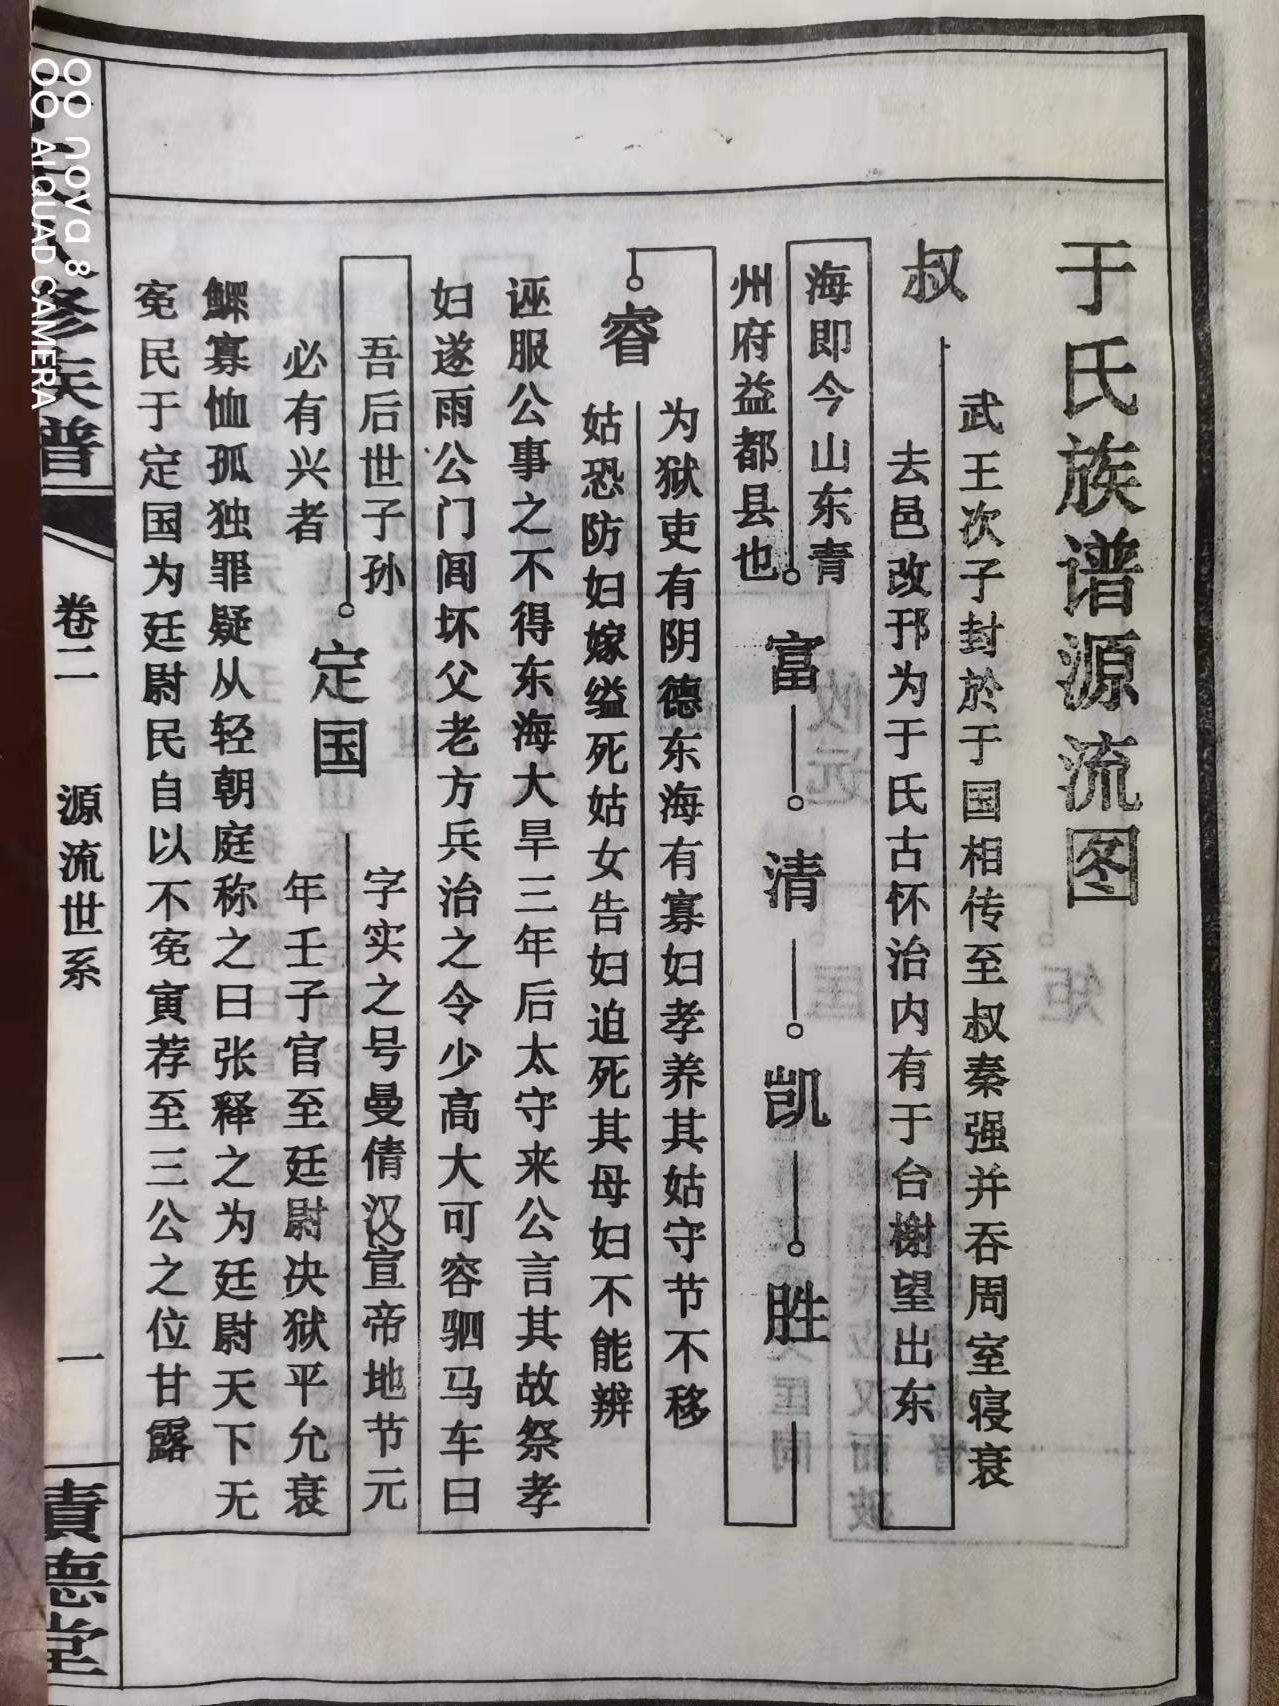 于氏族谱源流图
叔
武王次子封於于国相传至叔秦强并吞周室寝衰
去邑改邘为于氏古怀治内有于台榭望出东
海即今山东青
州府益都县也
富
清
凯
胜
睿
为狱吏有阴德东海有寡妇孝养其姑守节不移
姑恐防妇嫁缢死姑女告妇迫死其母妇不能辨
诬服公事之不得东海大旱三年后太守来公言其故祭孝
妇遂雨公门闾坏父老方兵治之令少高大可容驷马车曰
吾后世子孙
必有兴者
定国
字实之号曼倩汉宣帝地节元
年壬子官至廷尉决狱平允衰
鳏寡恤孤独罪疑从轻朝庭称之曰张释之为廷尉天下无
冤民于定国为廷尉民自以不冤寅荐至三公之位甘露
修族谱
卷二
源流世系
一
德堂
nova 8
AI QUAD CAMERA